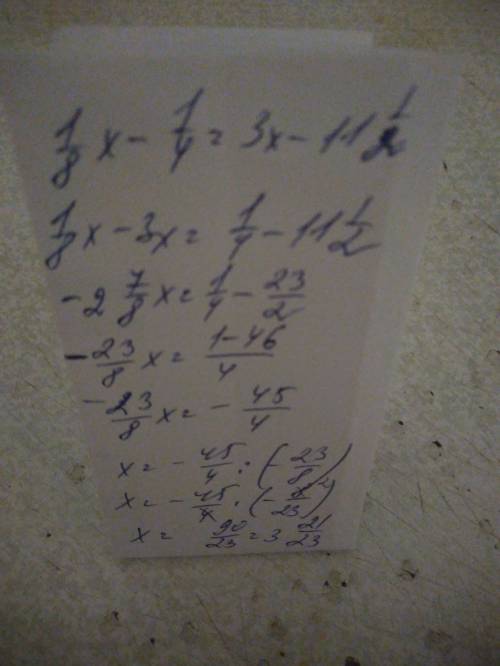 1/8 x - 1/4 = 3x - 11 1/2
1/8 x - 3x = 1/4 - 11 1/2
-2 7/8 x = 1/4 - 23/2
-23/8 x = (1-46)/4
-23/8 x = -45/4
x = -45/4 : (-23/8)
x = -45/4 · (-8/23) 2
x = 90/23 = 3 21/23